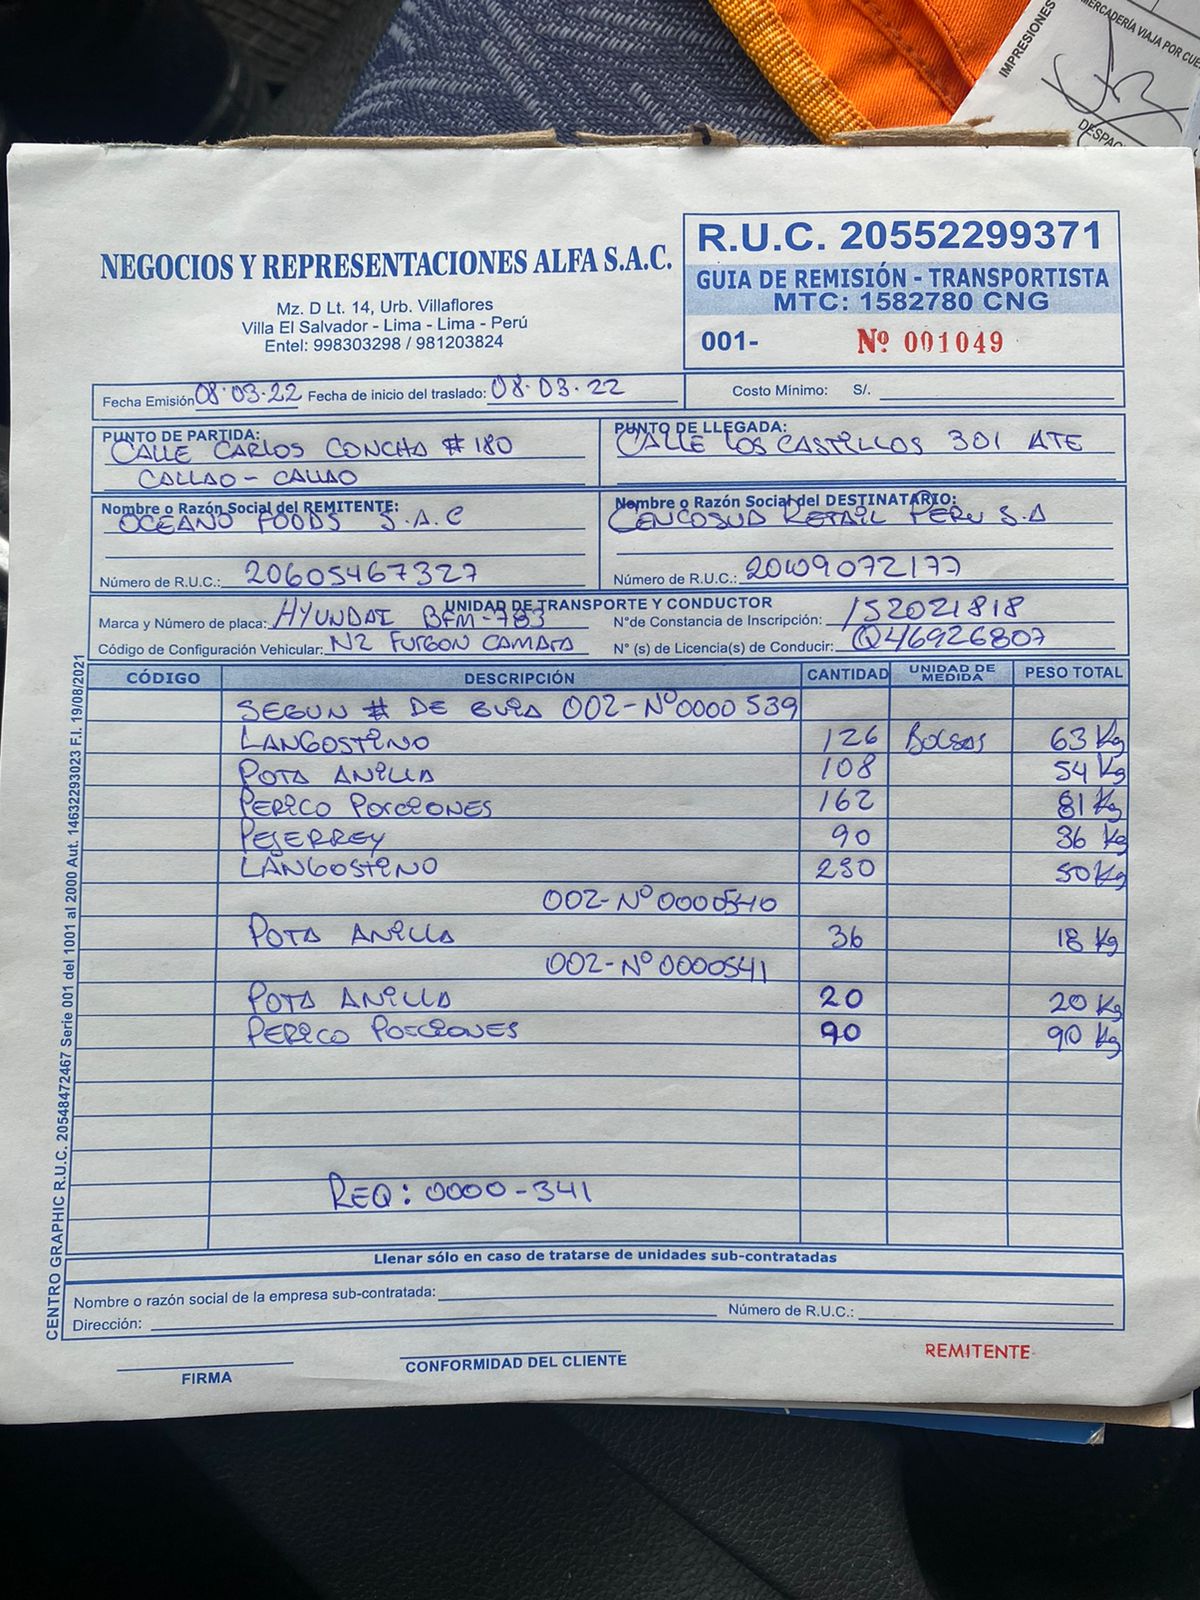 IMPRESIONES
MERCADERÍA VIAJA POR CUE
DESPAC
NEGOCIOS Y REPRESENTACIONES ALFA S.A.C.
Mz. D Lt. 14, Urb. Villaflores
Villa El Salvador - Lima - Lima - Perú
Entel: 998303298 / 981203824
R.U.C. 20552299371
GUIA DE REMISIÓN - TRANSPORTISTA
MTC: 1582780 CNG
001- Nº 001049
Fecha Emisión 08·03·22 Fecha de inicio del traslado: 08·03·22
Costo Mínimo: S/.
PUNTO DE PARTIDA:
CALLE CARLOS CONCHA # 180
CALLAO - CALLAO
PUNTO DE LLEGADA:
CALLE LOS CASTILLOS 301 ATE
Nombre o Razón Social del REMITENTE:
OCEANO FOODS S.A.C
Número de R.U.C.: 20605467327
Nombre o Razón Social del DESTINATARIO:
CENCOSUD RETAIL PERU S.A
Número de R.U.C.: 20109072177
UNIDAD DE TRANSPORTE Y CONDUCTOR
Marca y Número de placa: HYUNDAI BFM-783
N°de Constancia de Inscripción: 152021818
Código de Configuración Vehicular: N2 FURGON CAMARA
N° (s) de Licencia(s) de Conducir: Q46926807
CÓDIGO DESCRIPCIÓN CANTIDAD UNIDAD DE MEDIDA PESO TOTAL
SEGUN # DE GUIA 002-Nº0000539
LANGOSTINO 126 BOLSAS 63 Kg
POTA ANILLA 108 54 Kg
PERICO PORCIONES 162 81 Kg
PEJERREY 90 36 Kg
LANGOSTINO 250 50 Kg
002-Nº0000540
POTA ANILLA 36 18 Kg
002-Nº0000541
POTA ANILLA 20 20 Kg
PERICO PORCIONES 90 90 Kg
REQ: 0000-341
Llenar sólo en caso de tratarse de unidades sub-contratadas
Nombre o razón social de la empresa sub-contratada:
Dirección: Número de R.U.C.:
FIRMA
CONFORMIDAD DEL CLIENTE
REMITENTE
CENTRO GRAPHIC R.U.C. 20548472467 Serie 001 del 1001 al 2000 Aut. 14632293023 F.I. 19/08/2021